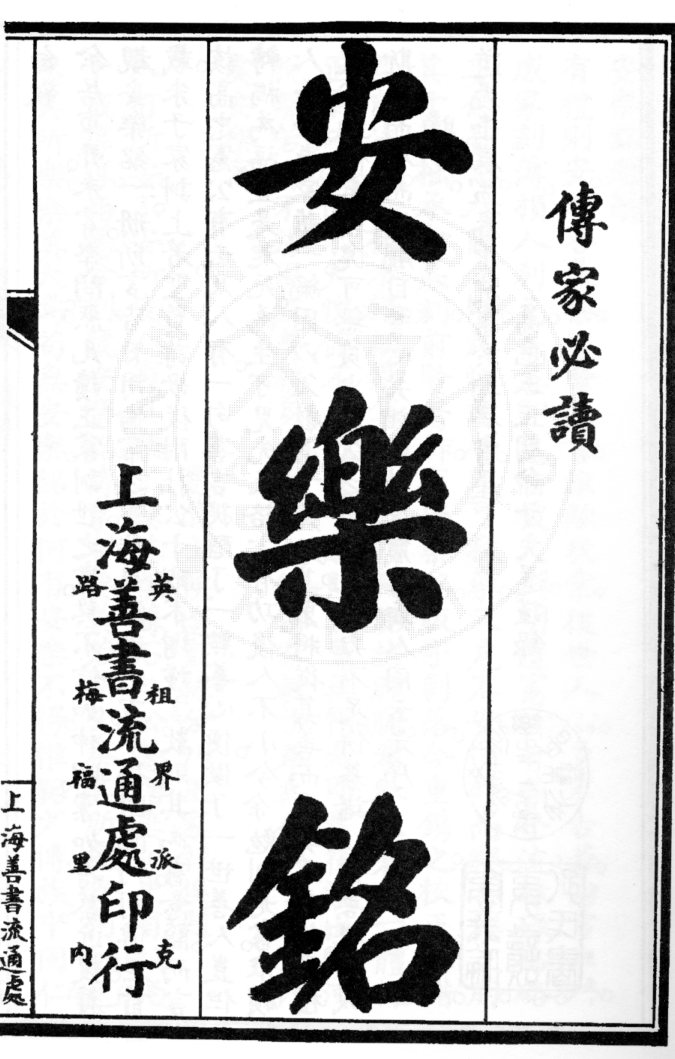 傳家必讀
安樂銘
英租界派克
上海善書流通處印行
路梅福里內
上海善書流通處